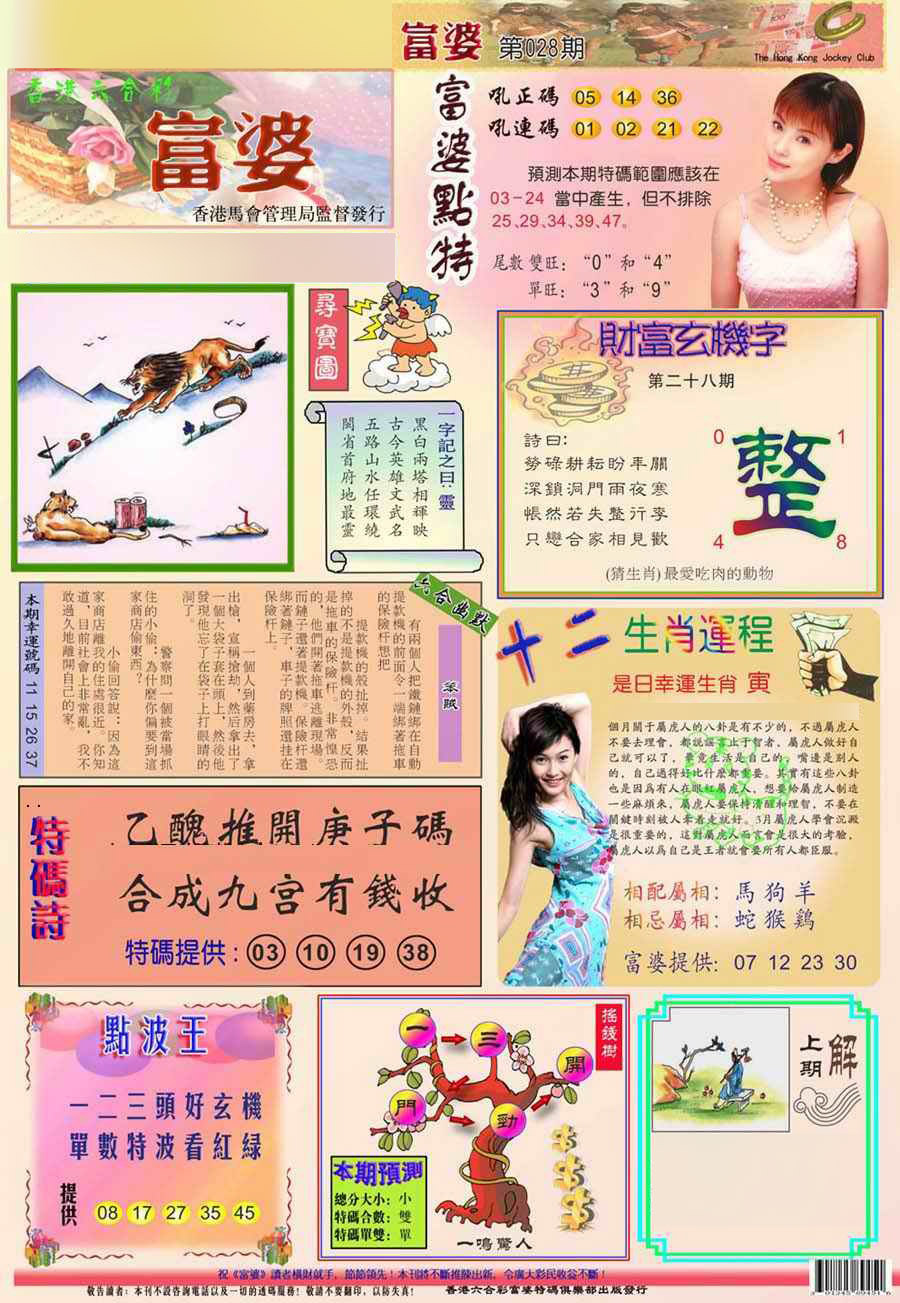 富婆 第028期
The Hong Kong Jockey Club
香港六合彩
富婆
香港馬會管理局監督發行
富婆點特
吼正碼 05 14 36
吼連碼 01 02 21 22
預測本期特碼範圍應該在
03-24 當中產生，但不排除
25、29、34、39、47。
尾數 雙旺：“0”和“4”
單旺：“3”和“9”
尋寶圖
一字記之曰：靈
黑白兩塔相輝映
古今英雄文武名
五路山水任環繞
閩省首府地最靈
財富玄機字
第二十八期
詩曰：
勞碌耕耘盼年關
深鎖洞門雨夜寒
悵然若失整行李
只戀合家相見歡
0 1
整
4 8
(猜生肖)最愛吃肉的動物
六合幽默
笨賊
有兩個人把鐵鏈綁在自動
提款機的前面令一端綁著拖車
的保險杆想把
提款機的殼扯掉。結果扯
掉的不是提款機的外殼，反而
是拖車的保險杆。非常惶恐
的，他們開著拖車逃離現場。
而鏈子還著提款機。保險杆還
綁著鏈子，車子的牌照還挂在
保險杆上。
一個人到藥房去，拿
出槍，宣稱搶劫，然后拿出了
一個大袋子套在頭上，然後他
發現他忘了在袋子上打眼睛的
洞了。
警察問一個被當場抓
住的小偷：為什麼你偏要到這
家商店偷東西？
小偷回答說：因為這
家商店離我的住處很近。你知
道，目前社會上非常亂，我不
敢過久地離開自己的家。
本期幸運號碼 11 15 26 37
十二生肖運程
是日幸運生肖 寅
個月關于屬虎人的八卦是有不少的，不過屬虎人
不要去理會，都說謠言止于智者，屬虎人做好自
己就可以了，畢竟生活是自己的，嘴邊是別人
的，自己過得好比什麼都重要。其實有這些八卦
也是因爲有人在眼紅屬虎人，想要給屬虎人制造
一些麻煩來，屬虎人要保持清醒和理智，不要在
關鍵時刻被人牽着走就好。3月屬虎人學會沉澱
是很重要的，這對屬虎人而言會是很大的考驗，
屬虎人以爲自己是王者就會要所有人都臣服。
相配屬相：馬狗羊
相忌屬相：蛇猴鷄
富婆提供：07 12 23 30
特碼詩
乙醜推開庚子碼
合成九宮有錢收
特碼提供：03 10 19 38
點波王
一二三頭好玄機
單數特波看紅綠
提供 08 17 27 35 45
搖錢樹
一 三
開
門
勁
本期預測
總分大小：小
特碼合數：雙
特碼單雙：單
一鳴驚人
上期解
祝《富婆》讀者橫財就手，節節領先！本刊將不斷推陳出新，令廣大彩民收益不斷！
敬告讀者：本刊不設咨詢電話以及一切的透碼服務！敬請不要翻印，以防失真！ 香港六合彩富婆特碼俱樂部出版發行